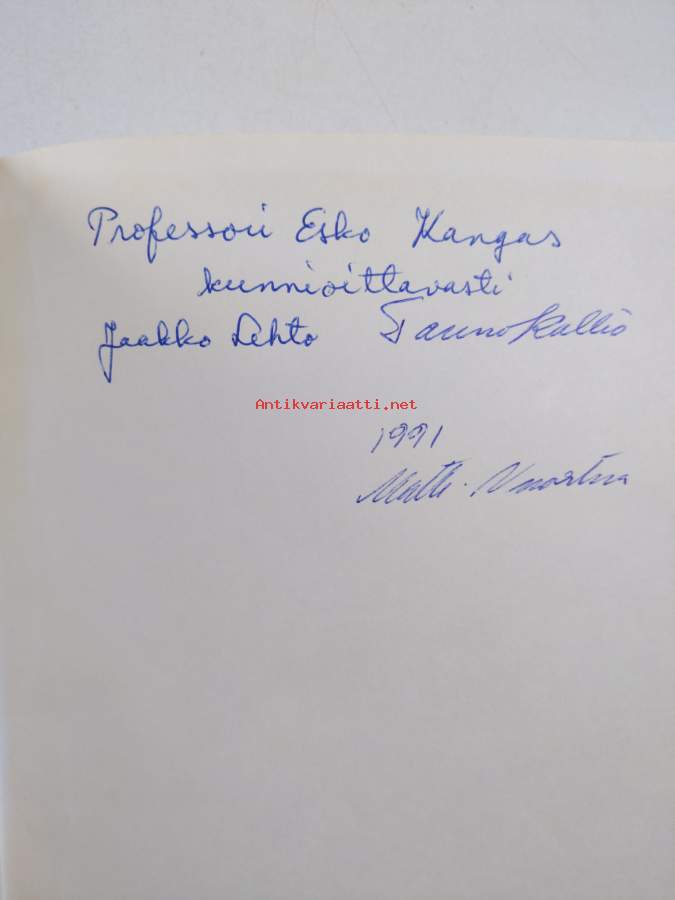 Professori Esko Kangas
kunnioittavasti
Jaakko Lehto Tauno Kallio
Antikvariaatti.net
1991
Matti